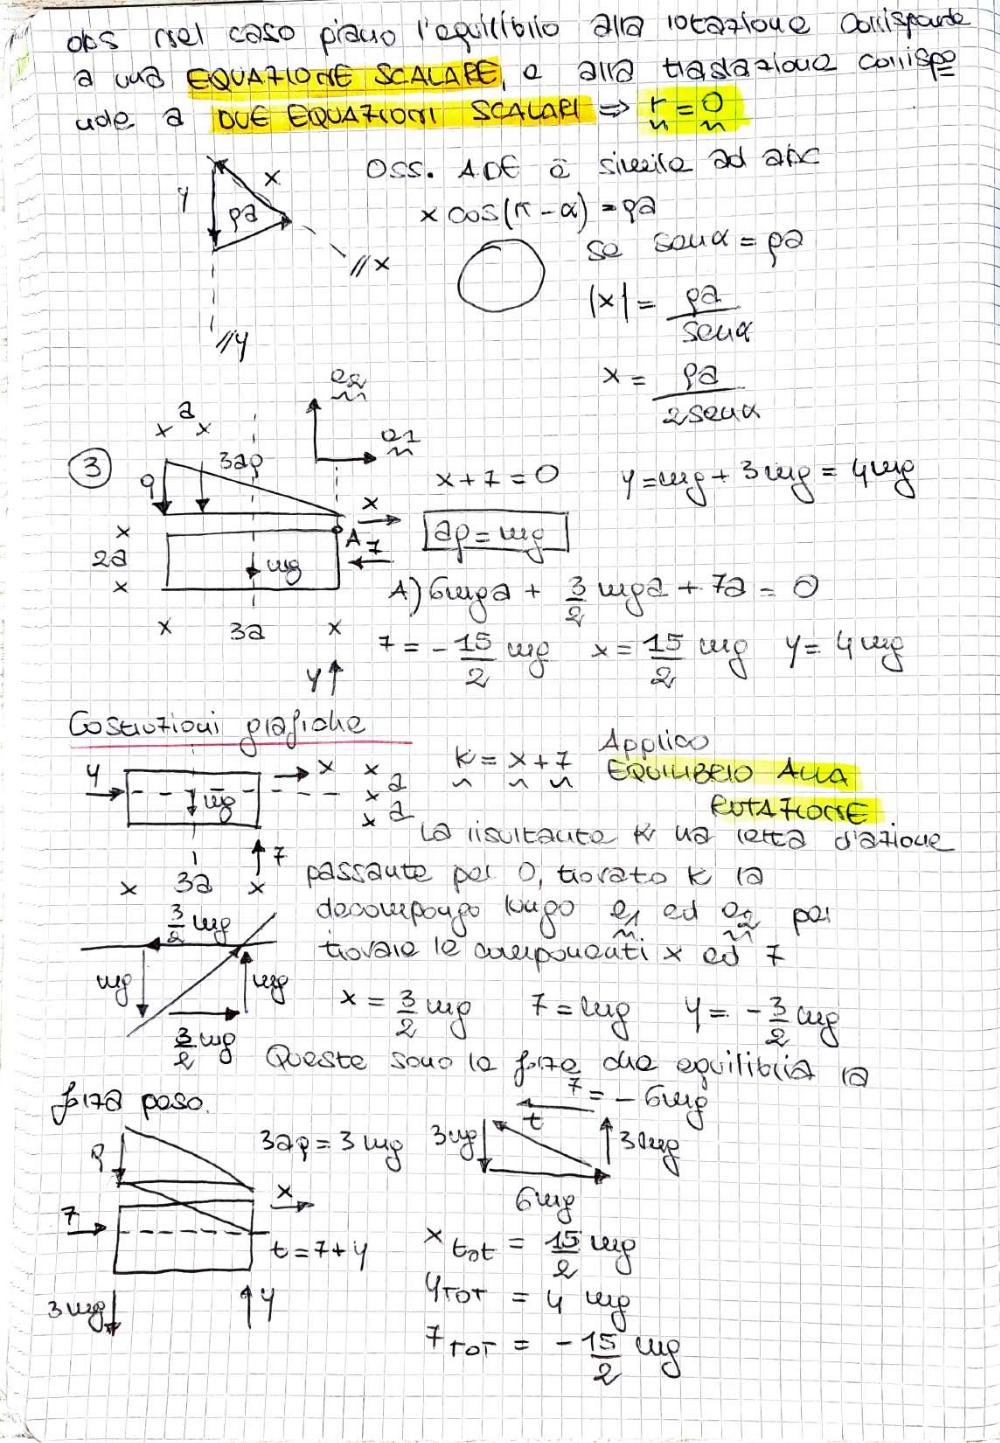 obs nel caso piano l'equilibrio alla rotazione corrisponde
a una EQUAZIONE SCALARE, e alla traslazione corrispo
nde a DUE EQUAZIONI SCALARI ⇒ r = 0
y x pa
Oss. ADE è simile ad ABC
x cos(π - α) = pa
// x
se senα = pa
|x| = pa / senα
// y
x = pa / 2senα
e2
a
x x
e1
3
q 3ap
x + z = 0 y = mg + 3mg = 4mg
x
x
2a
x
A z
ap = mg
mg
A) 6mga + 3/2 mga + za = 0
x 3a x
z = - 15/2 mg x = 15/2 mg y = 4mg
y
Costruzioni grafiche
y mg x x a x a x
k = x + z Applico
EQUILIBRIO ALLA
ROTAZIONE
La risultante k ha retta d'azione
z
x 3a x
passante per O, trovato k la
decompongo lungo e1 ed e2 per
trovare le componenti x ed z
3/2 mg
mg mg
3/2 mg
x = 3/2 mg z = mg y = - 3/2 mg
Queste sono le forze che equilibria la
forza peso.
z = - 6mg
t
3ap = 3mg
3mg 3mg
6mg
p
x
z
t = z + y
3mg y
x tot = 15/2 mg
y TOT = 4 mg
z TOT = - 15/2 mg